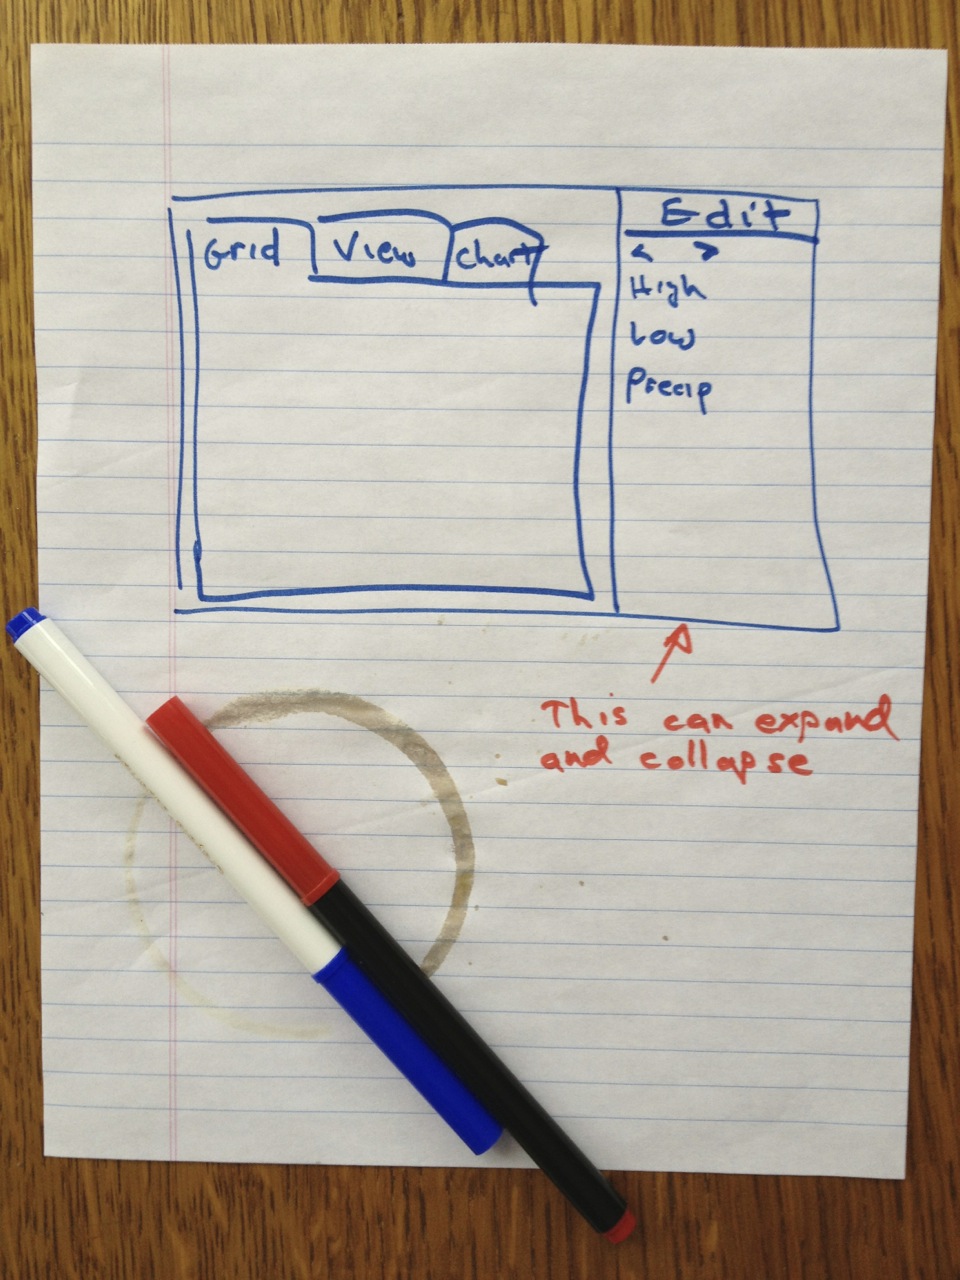 Grid View Chart
Edit
< >
High
Low
Precip
This can expand
and collapse